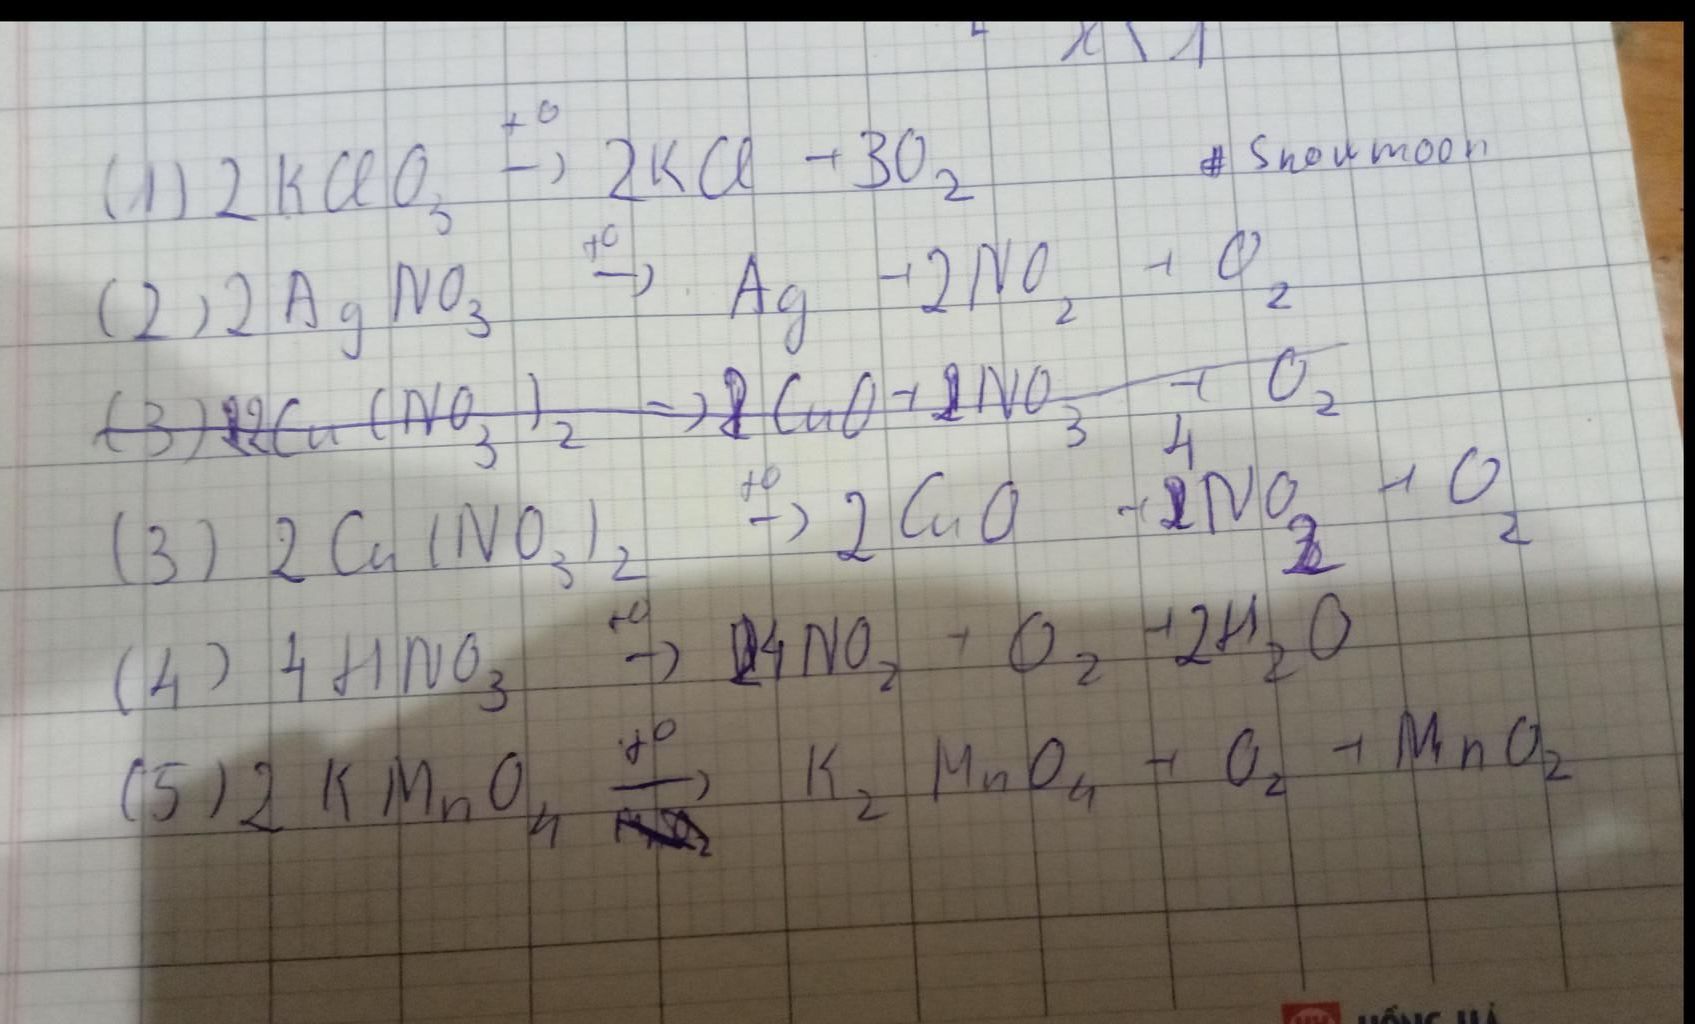 x \ 1
+O
(1) 2KClO₃ → 2KCl + 3O₂
# Snowmoon
+O
(2) 2AgNO₃ → Ag + 2NO₂ + O₂
(3) 2Cu(NO₃)₂ → 2CuO + 2NO₃ + O₂
+O
4
(3) 2Cu(NO₃)₂ → 2CuO + NO₂ + O₂
+O
(4) 4HNO₃ → 4NO₂ + O₂ + 2H₂O
+O
(5) 2KMnO₄ → K₂MnO₄ + O₂ + MnO₂
HỒNG HÀ